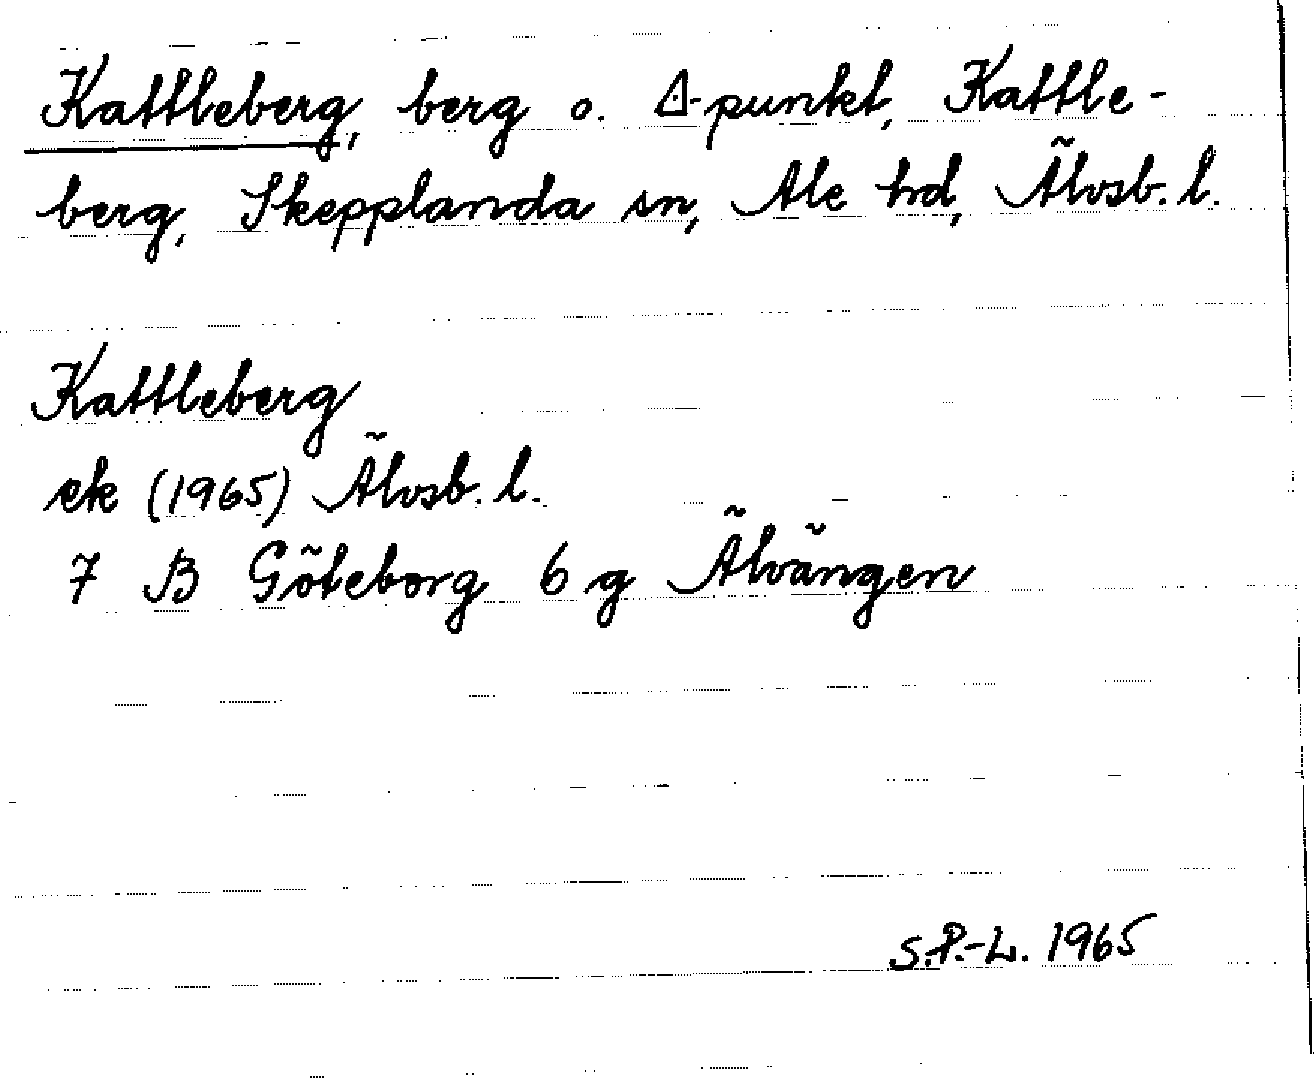 Kattleberg, berg o. △-punkt, Kattle-
berg, Skepplanda sn, Ale hd, Älvsb. l.
Kattleberg
ek (1965) Älvsb. l.
7 B Göteborg 6 g Älvängen
S.P.-L. 1965